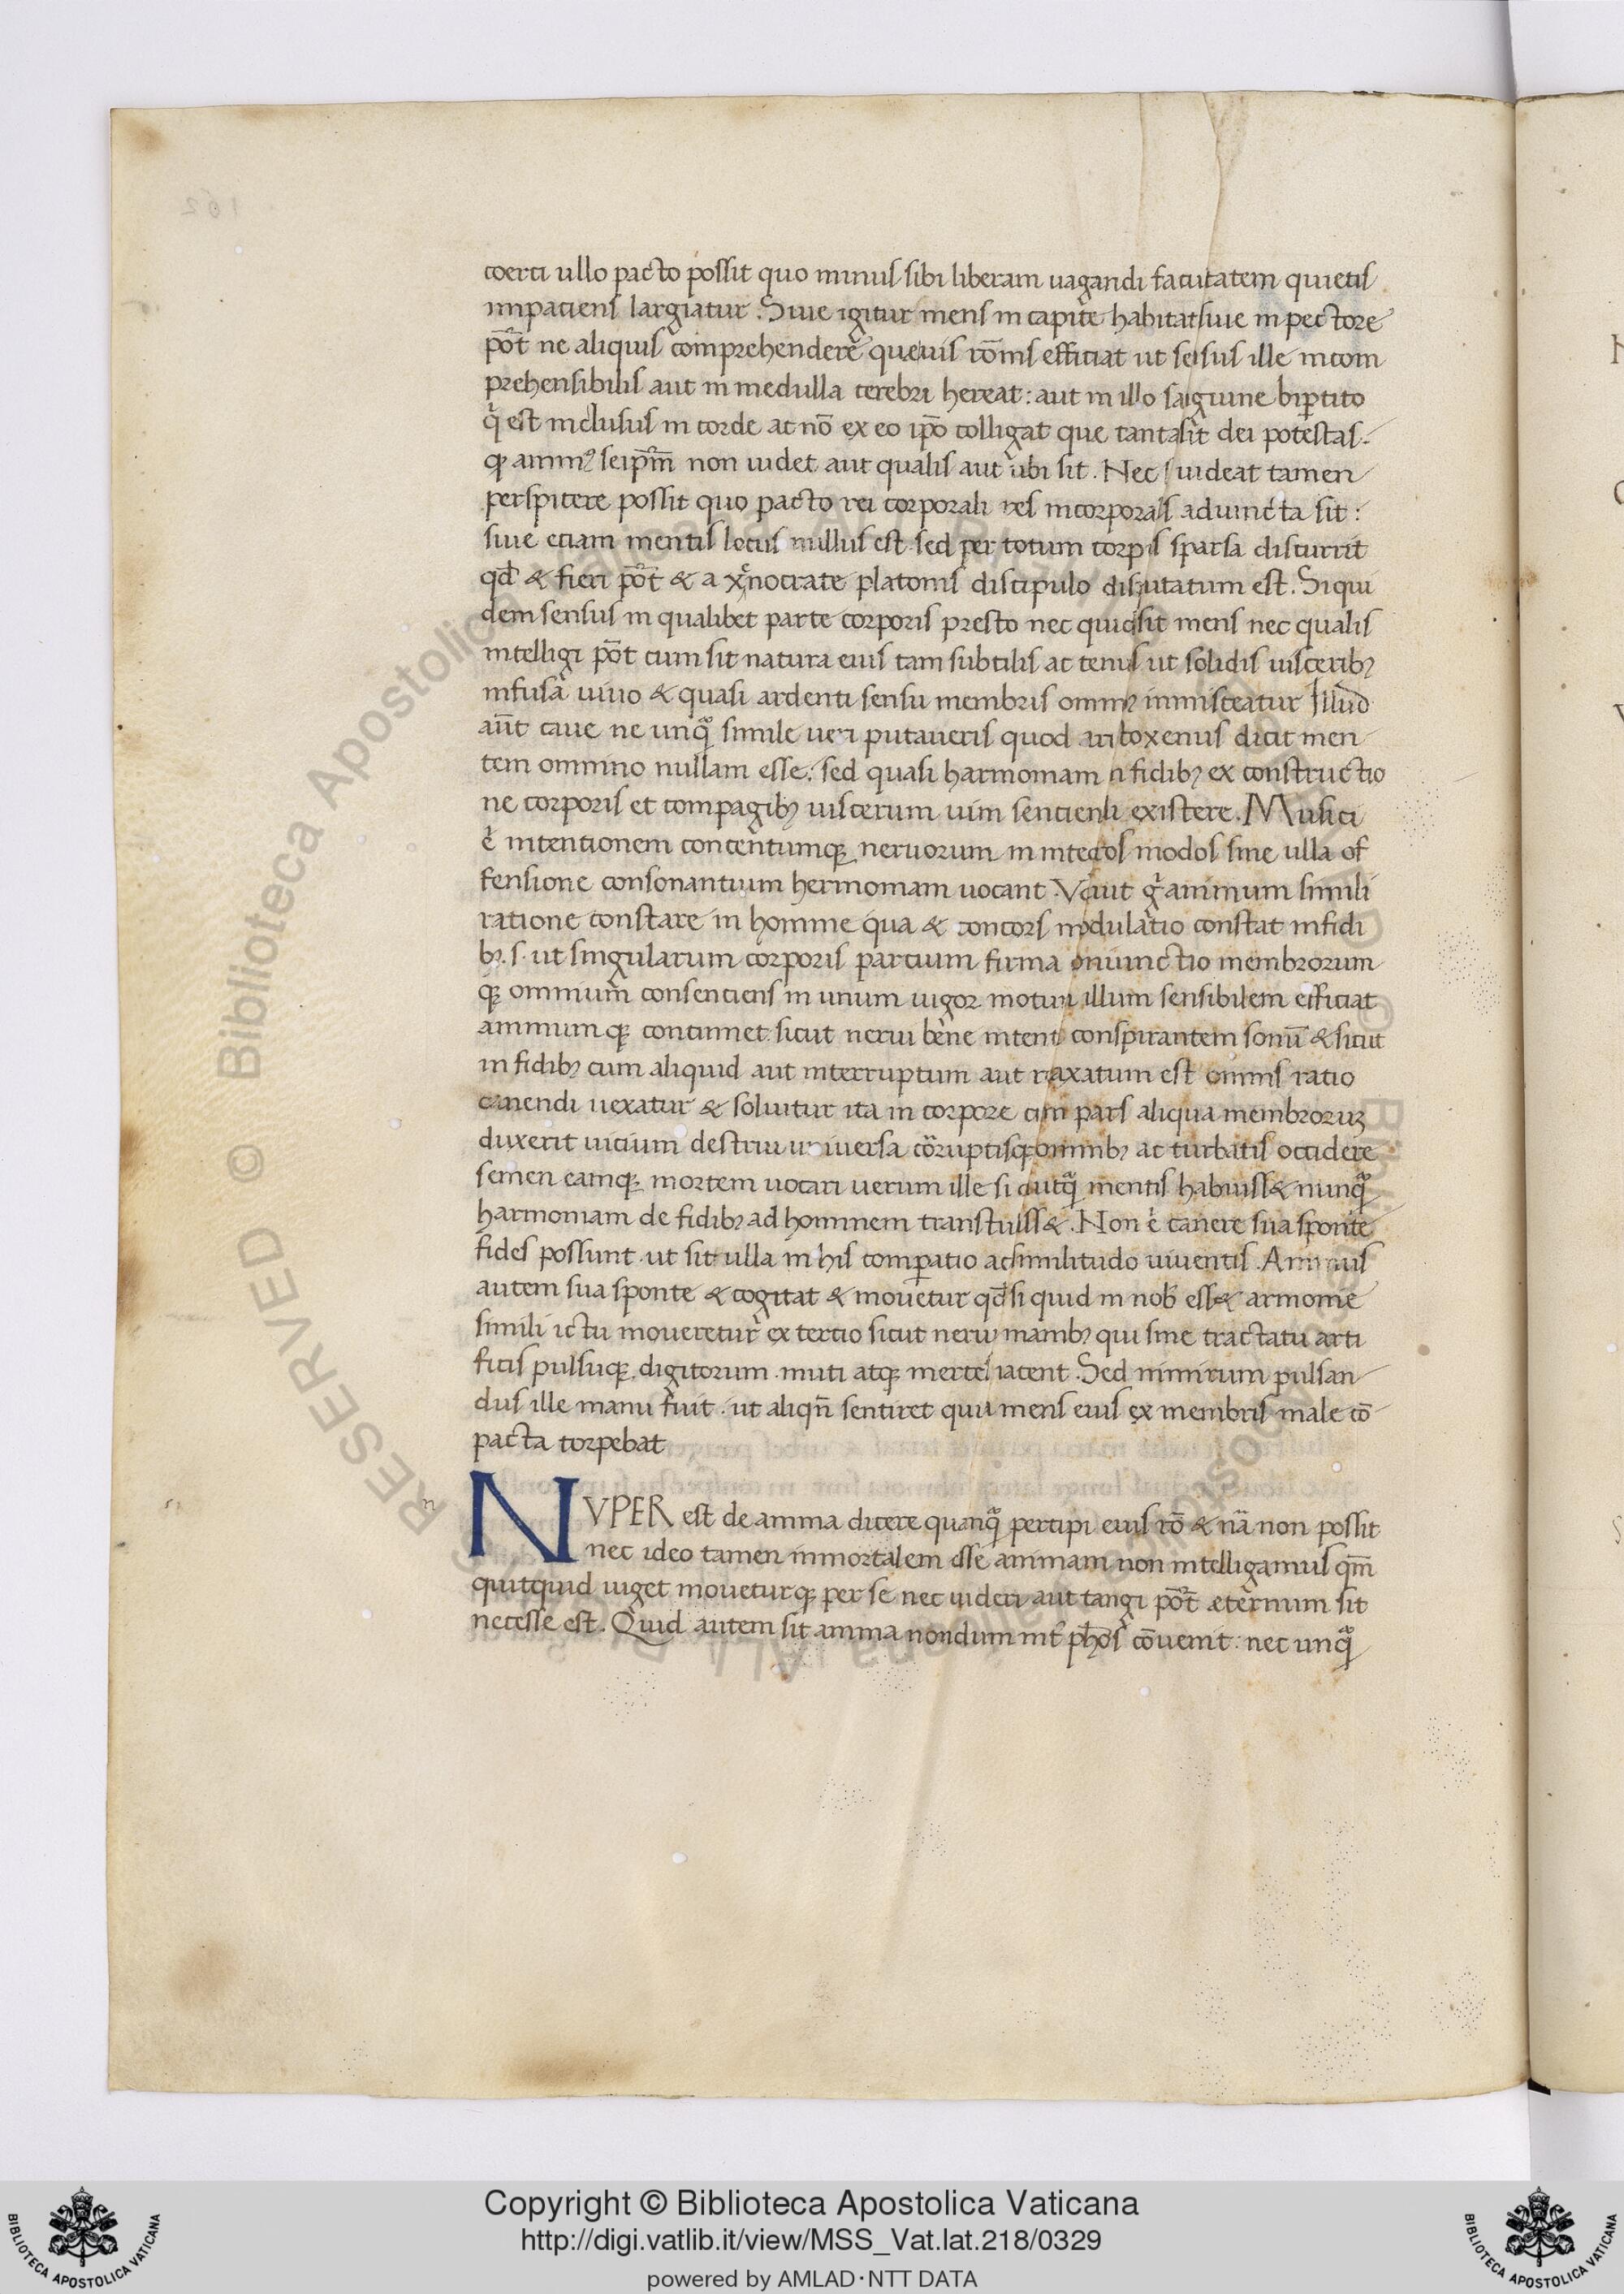 162
coerci ullo pacto possit quo minus sibi liberam uagandi facultatem quietis
impatiens largiatur. Siue igitur mens in capite habitat siue in pectore
põt ne aliquis comprehendere queuis rõnis efficiat ut sensus ille incom
prehensibilis aut in medulla cerebri hereat: aut in illo sanguine bipertito
q̇ est inclusus in corde ac nõ ex eo ipõ colligat que tanta sit dei potestas.
qꝫ animꝰ seip̃m non uidet aut qualis aut ubi sit. Nec si uideat tamen
perspicere possit quo pacto rei corporali res incorporalis adiuncta sit:
siue eciam mentis locus nullus est sed per totum corpus sparsa discurrit
qđ & fieri põt & a xenocrate platonis discipulo disputatum est. Siqui
dem sensus in qualibet parte corporis presto nec quid sit mens nec qualis
intelligi põt cum sit natura eius tam subtilis ac tenuis ut solidis uisceribꝫ
infusa uiuo & quasi ardenti sensu membris omnibꝫ immisceatur Illud
aũt caue ne unq̃ simile ueri putaueris quod aristoxenus dicit men
tem omnino nullam esse: sed quasi harmoniam in fidibꝫ ex constructio
ne corporis et compagibꝫ uiscerum uim senciendi existere. Musici
.n. intentionem concentumqꝫ neruorum in integros modos sine ulla of
fensione consonantium hermoniam uocant. Voluit g̊ animum simili
ratione constare in homine qua & concors modulatio constat in fidi
bꝫ. s. ut singularum corporis partium firma coniunctio membrorum
qꝫ omnium consenciens in unum uigor motum illum sensibilem efficiat
animumqꝫ concinnet sicut nerui bene intenti conspirantem sonũ & sicut
in fidibꝫ cum aliquid aut interruptum aut relaxatum est omnis ratio
canendi uexatur & soluitur ita in corpore cum pars aliqua membrorum
duxerit uicium destrui uniuersa coruptisqꝫ omnibꝫ ac turbatis occidere
semen eamqꝫ mortem uocari uerum ille si quicq̃ mentis habuiss& nunq̃
harmoniam de fidibꝫ ad hominem transtuliss&. Non .n. canere sua sponte
fides possunt ut sit ulla in his comparatio ac similitudo uiuentis. Animus
autem sua sponte & cogitat & mouetur qđ si quid in nob̃ ess& armonie
simili ictu moueretur externo sicut nerui manibꝫ qui sine tractatu arti
ficis pulsuqꝫ digitorum muti atqꝫ inertes iacent. Sed nimirum pulsan
dus ille manu fuit. ut aliqñ sentiret quia mens eius ex membris male cõ
pacta torpebat
n
NVPER est de anima dicere quanq̃ percipi eius rõ & nã non possit
nec ideo tamen inmortalem esse animam non intelligamus qm̃
quitquid uiget moueturqꝫ per se nec uideri aut tangi põt æternum sit
necesse est. Quid autem sit anima nondum int̃ ph̃os cõuenit: nec unq̃
RESERVED © Biblioteca Apostolica Vaticana
Copyright © Biblioteca Apostolica Vaticana
http://digi.vatlib.it/view/MSS_Vat.lat.218/0329
powered by AMLAD·NTT DATA
BIBLIOTECA APOSTOLICA VATICANA
BIBLIOTECA APOSTOLICA VATICANA